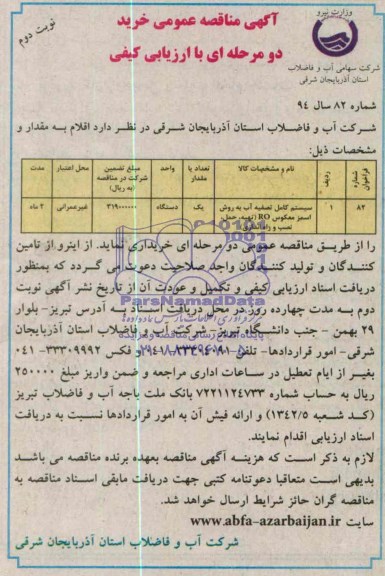 وزارت نیرو
شرکت سهامی آب و فاضلاب
استان آذربایجان شرقی
نوبت دوم
آگهی مناقصه عمومی خرید
دو مرحله ای با ارزیابی کیفی
شماره ۸۲ سال ۹۴
شرکت آب و فاضلاب استان آذربایجان شرقی در نظر دارد اقلام به مقدار و
مشخصات ذیل:
شماره فراخوان ردیف نام و مشخصات کالا تعداد یا مقدار واحد مبلغ تضمین شرکت در مناقصه (به ریال) محل اعتبار مدت
۸۲ ۱ سیستم کامل تصفیه آب به روش اسمز معکوس RO (تهیه، حمل، نصب و راه اندازی) یک دستگاه ۳۱۹۰۰۰۰۰۰ غیرعمرانی ۴ ماه
را از طریق مناقصه عمومی دو مرحله ای خریداری نماید. از اینرو از تامین
کنندگان و تولید کنندگان واجد صلاحیت دعوت می گردد که بمنظور
دریافت اسناد ارزیابی کیفی و تکمیل و عودت آن از تاریخ نشر آگهی نوبت
دوم به مدت چهارده روز در محل دریافت اسناد به آدرس تبریز- بلوار
۲۹ بهمن - جنب دانشگاه تبریز- شرکت آب و فاضلاب استان آذربایجان
شرقی- امور قراردادها- تلفن و فکس ۳۳۳۰۹۹۹۲-۰۴۱
بغیر از ایام تعطیل در ساعات اداری مراجعه و ضمن واریز مبلغ ۲۵۰۰۰۰
ریال به حساب شماره ۷۲۲۱۱۲۴۷۳۳ بانک ملت باجه آب و فاضلاب تبریز
(کد شعبه ۱۳۴۲/۵) و ارائه فیش آن به امور قراردادها نسبت به دریافت
اسناد ارزیابی اقدام نمایند.
لازم به ذکر است که هزینه آگهی مناقصه بعهده برنده مناقصه می باشد
بدیهی است متعاقبا دعوتنامه کتبی جهت دریافت مابقی اسناد مناقصه به
مناقصه گران حائز شرایط ارسال خواهد شد.
سایت www.abfa-azarbaijan.ir
شرکت آب و فاضلاب استان آذربایجان شرقی
ParsNamadData